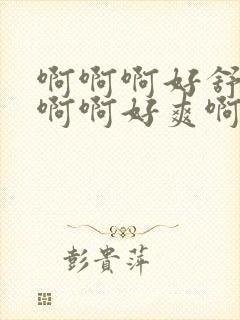 啊啊啊好舒
啊啊好爽啊
彭貴萍